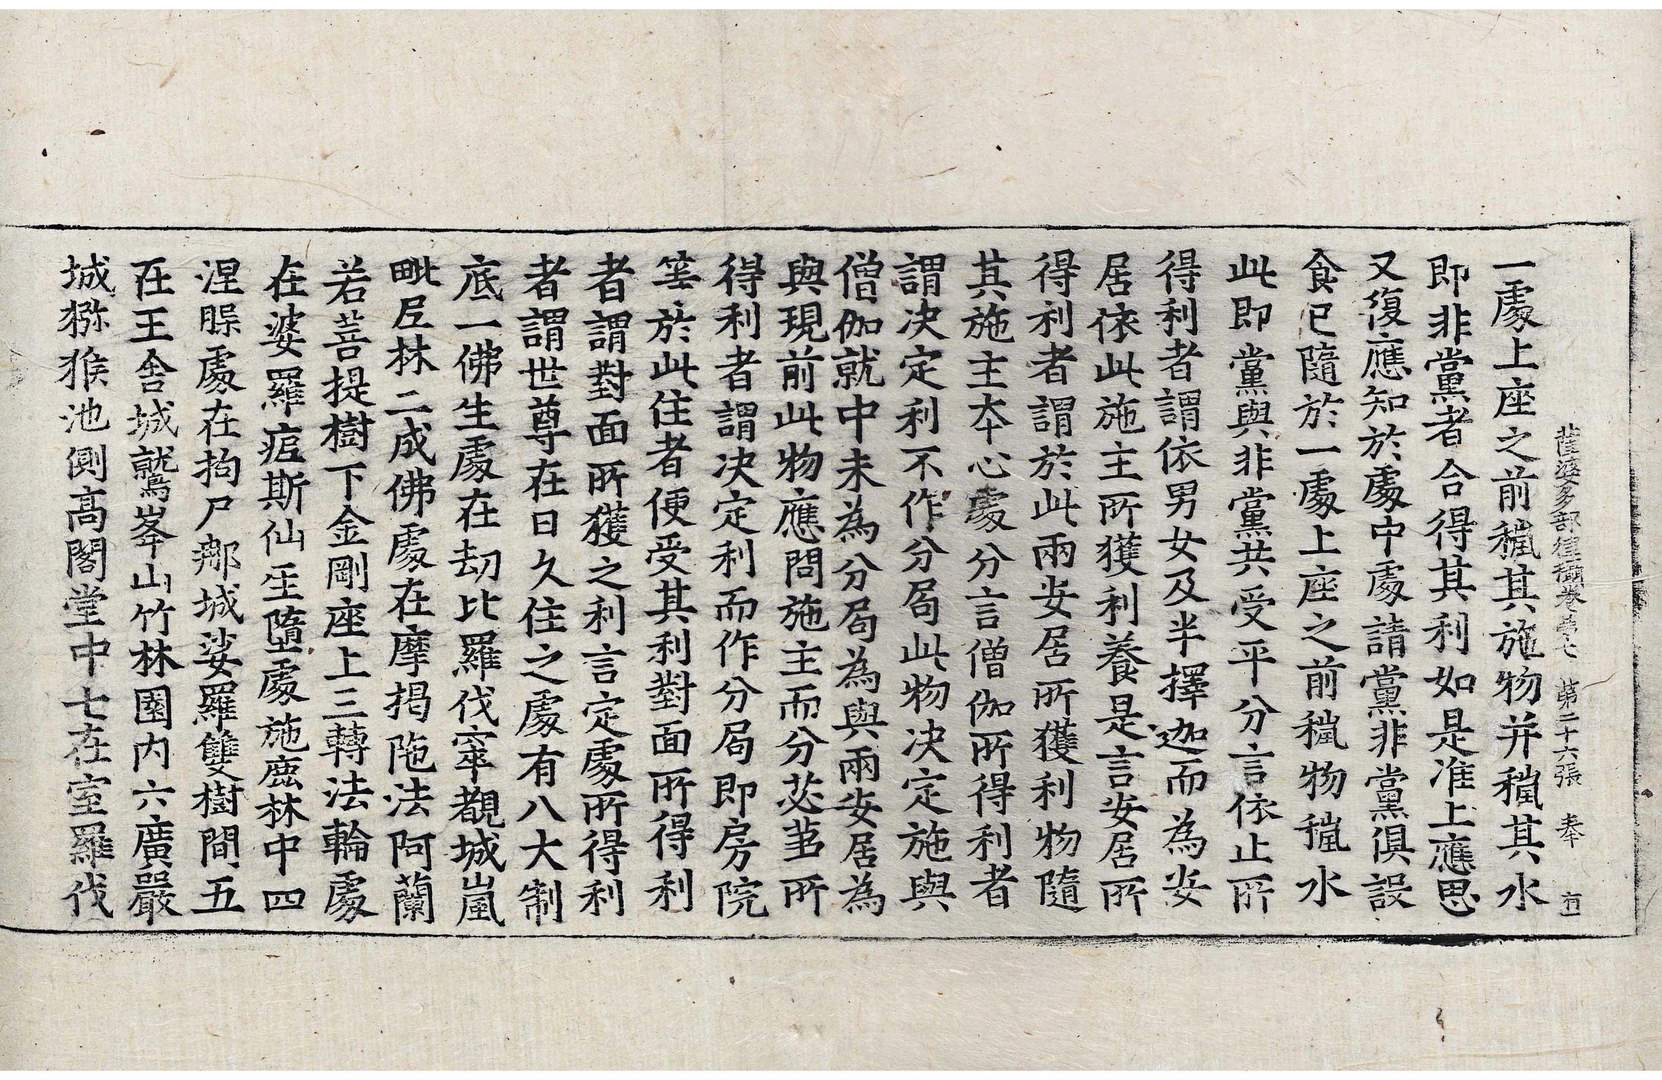 薩婆多部律攝卷第七 第二十六張 奉
一處上座之前穐其施物并穐其水
即非黨者合得其利如是准上應思
又復應知於處中處請黨非黨俱設
食已隨於一處上座之前穐物穐水
此即黨與非黨共受平分言依止所
得利者謂依男女及半擇迦而為安
居依此施主所獲利養是言安居所
得利者謂於此兩安居所獲利物隨
其施主本心處分言僧伽所得利者
謂決定利不作分局此物決定施與
僧伽就中未為分局為與兩安居為
與現前此物應問施主而分苾芻所
得利者謂決定利而作分局即房院
等於此住者便受其利對面所得利
者謂對面所獲之利言定處所得利
者謂世尊在日久住之處有八大制
底一佛生處在劫比羅伐窣覩城嵐
毗尼林二成佛處在摩揭陁法阿蘭
若菩提樹下金剛座上三轉法輪處
在婆羅痆斯仙人墮處施鹿林中四
涅槃處在拘尸那城娑羅雙樹間五
在王舍城鷲峯山竹林園內六廣嚴
城獼猴池側高閣堂中七在室羅伐